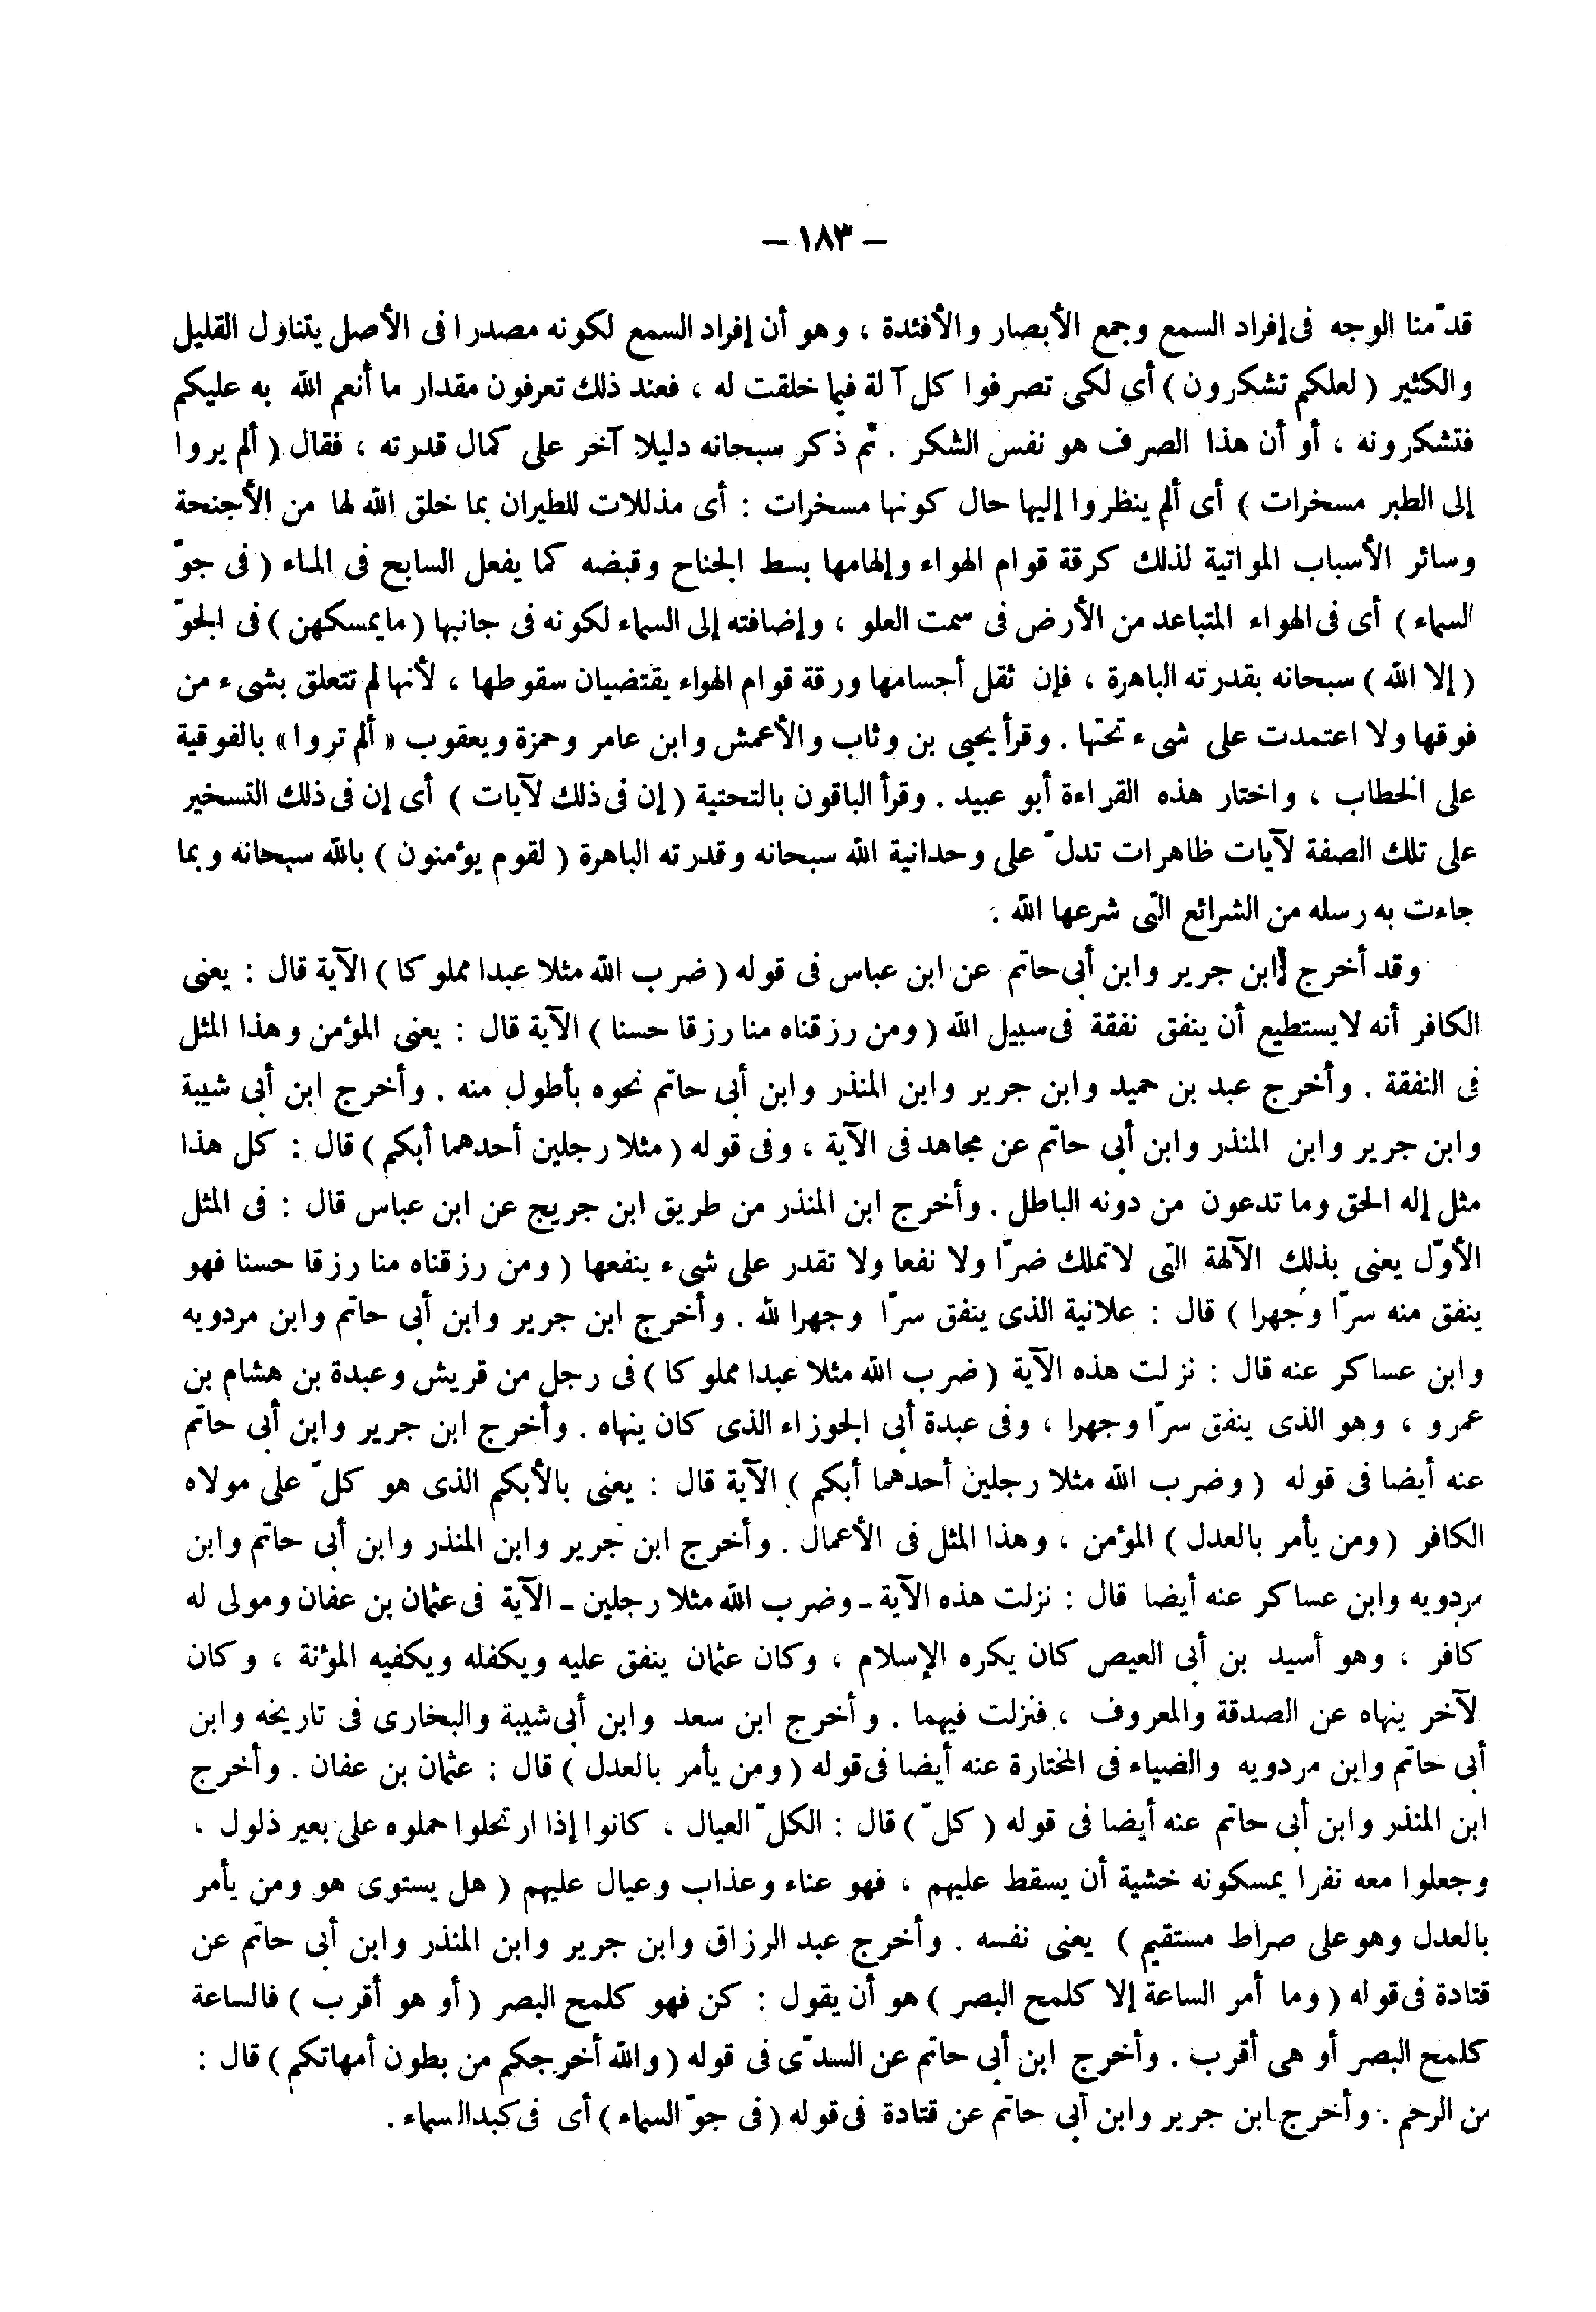 – ١٨٣ –
قدّمنا الوجه فى إفراد السمع وجمع الأبصار والأفئدة ، وهو أن إفراد السمع لكونه مصدرا فى الأصل يتناول القليل
والكثير ( لعلكم تشكرون ) أى لكى تصرفوا كل آلة فيما خلقت له ، فعند ذلك تعرفون مقدار ما أنعم الله به عليكم
فتشكرونه ، أو أن هذا الصرف هو نفس الشكر . ثم ذكر سبحانه دليلا آخر على كمال قدرته ، فقال ( ألم يروا
إلى الطير مسخرات ) أى ألم ينظروا إليها حال كونها مسخرات : أى مذللات للطيران بما خلق الله لها من الأجنحة
وسائر الأسباب المواتية لذلك كرقة قوام الهواء وإلهامها بسط الجناح وقبضه كما يفعل السابح فى الماء ( فى جوّ
السماء ) أى فى الهواء المتباعد من الأرض فى سمت العلو ، وإضافته إلى السماء لكونه فى جانبها ( ما يمسكهن ) فى الجوّ
( إلا الله ) سبحانه بقدرته الباهرة ، فإن ثقل أجسامها ورقة قوام الهواء يقتضيان سقوطها ، لأنها لم تتعلق بشىء من
فوقها ولا اعتمدت على شىء تحتها . وقرأ يحيى بن وثاب والأعمش وابن عامر وحمزة ويعقوب « ألم تروا » بالفوقية
على الخطاب ، واختار هذه القراءة أبو عبيد . وقرأ الباقون بالتحتية ( إن فى ذلك لآيات ) أى إن فى ذلك التسخير
على تلك الصفة لآيات ظاهرات تدلّ على وحدانية الله سبحانه وقدرته الباهرة ( لقوم يؤمنون ) بالله سبحانه وبما
جاءت به رسله من الشرائع التى شرعها الله .
وقد أخرج ابن جرير وابن أبى حاتم عن ابن عباس فى قوله ( ضرب الله مثلا عبدا مملوكا ) الآية قال : يعنى
الكافر أنه لا يستطيع أن ينفق نفقة فى سبيل الله ( ومن رزقناه منا رزقا حسنا ) الآية قال : يعنى المؤمن وهذا المثل
فى النفقة . وأخرج عبد بن حميد وابن جرير وابن المنذر وابن أبى حاتم نحوه بأطول منه . وأخرج ابن أبى شيبة
وابن جرير وابن المنذر وابن أبى حاتم عن مجاهد فى الآية ، وفى قوله ( مثلا رجلين أحدهما أبكم ) قال : كل هذا
مثل إله الحق وما تدعون من دونه الباطل . وأخرج ابن المنذر من طريق ابن جريج عن ابن عباس قال : فى المثل
الأوّل يعنى بذلك الآلهة التى لا تملك ضرّا ولا نفعا ولا تقدر على شىء ينفعها ( ومن رزقناه منا رزقا حسنا فهو
ينفق منه سرّا وجهرا ) قال : علانية الذى ينفق سرّا وجهرا لله . وأخرج ابن جرير وابن أبى حاتم وابن مردويه
وابن عساكر عنه قال : نزلت هذه الآية ( ضرب الله مثلا عبدا مملوكا ) فى رجل من قريش وعبدة بن هشام بن
عمرو ، وهو الذى ينفق سرّا وجهرا ، وفى عبدة أبى الجوزاء الذى كان ينهاه . وأخرج ابن جرير وابن أبى حاتم
عنه أيضا فى قوله ( وضرب الله مثلا رجلين أحدهما أبكم ) الآية قال : يعنى بالأبكم الذى هو كلّ على مولاه
الكافر ( ومن يأمر بالعدل ) المؤمن ، وهذا المثل فى الأعمال . وأخرج ابن جرير وابن المنذر وابن أبى حاتم وابن
مردويه وابن عساكر عنه أيضا قال : نزلت هذه الآية ـ وضرب الله مثلا رجلين ـ الآية فى عثمان بن عفان ومولى له
كافر ، وهو أسيد بن أبى العيص كان يكره الإسلام ، وكان عثمان ينفق عليه ويكفله ويكفيه المؤنة ، وكان
لآخر ينهاه عن الصدقة والمعروف ، فنزلت فيهما . وأخرج ابن سعد وابن أبى شيبة والبخارى فى تاريخه وابن
أبى حاتم وابن مردويه والضياء فى المختارة عنه أيضا فى قوله ( ومن يأمر بالعدل ) قال : عثمان بن عفان . وأخرج
ابن المنذر وابن أبى حاتم عنه أيضا فى قوله ( كلّ ) قال : الكلّ العيال ، كانوا إذا ارتحلوا حملوه على بعير ذلول ،
وجعلوا معه نفرا يمسكونه خشية أن يسقط عليهم ، فهو عناء وعذاب وعيال عليهم ( هل يستوى هو ومن يأمر
بالعدل وهو على صراط مستقيم ) يعنى نفسه . وأخرج عبد الرزاق وابن جرير وابن المنذر وابن أبى حاتم عن
قتادة فى قوله ( وما أمر الساعة إلا كلمح البصر ) هو أن يقول : كن فهو كلمح البصر ( أو هو أقرب ) فالساعة
كلمح البصر أو هى أقرب . وأخرج ابن أبى حاتم عن السدّى فى قوله ( والله أخرجكم من بطون أمهاتكم ) قال :
من الرحم . وأخرج ابن جرير وابن أبى حاتم عن قتادة فى قوله ( فى جوّ السماء ) أى فى كبد السماء .